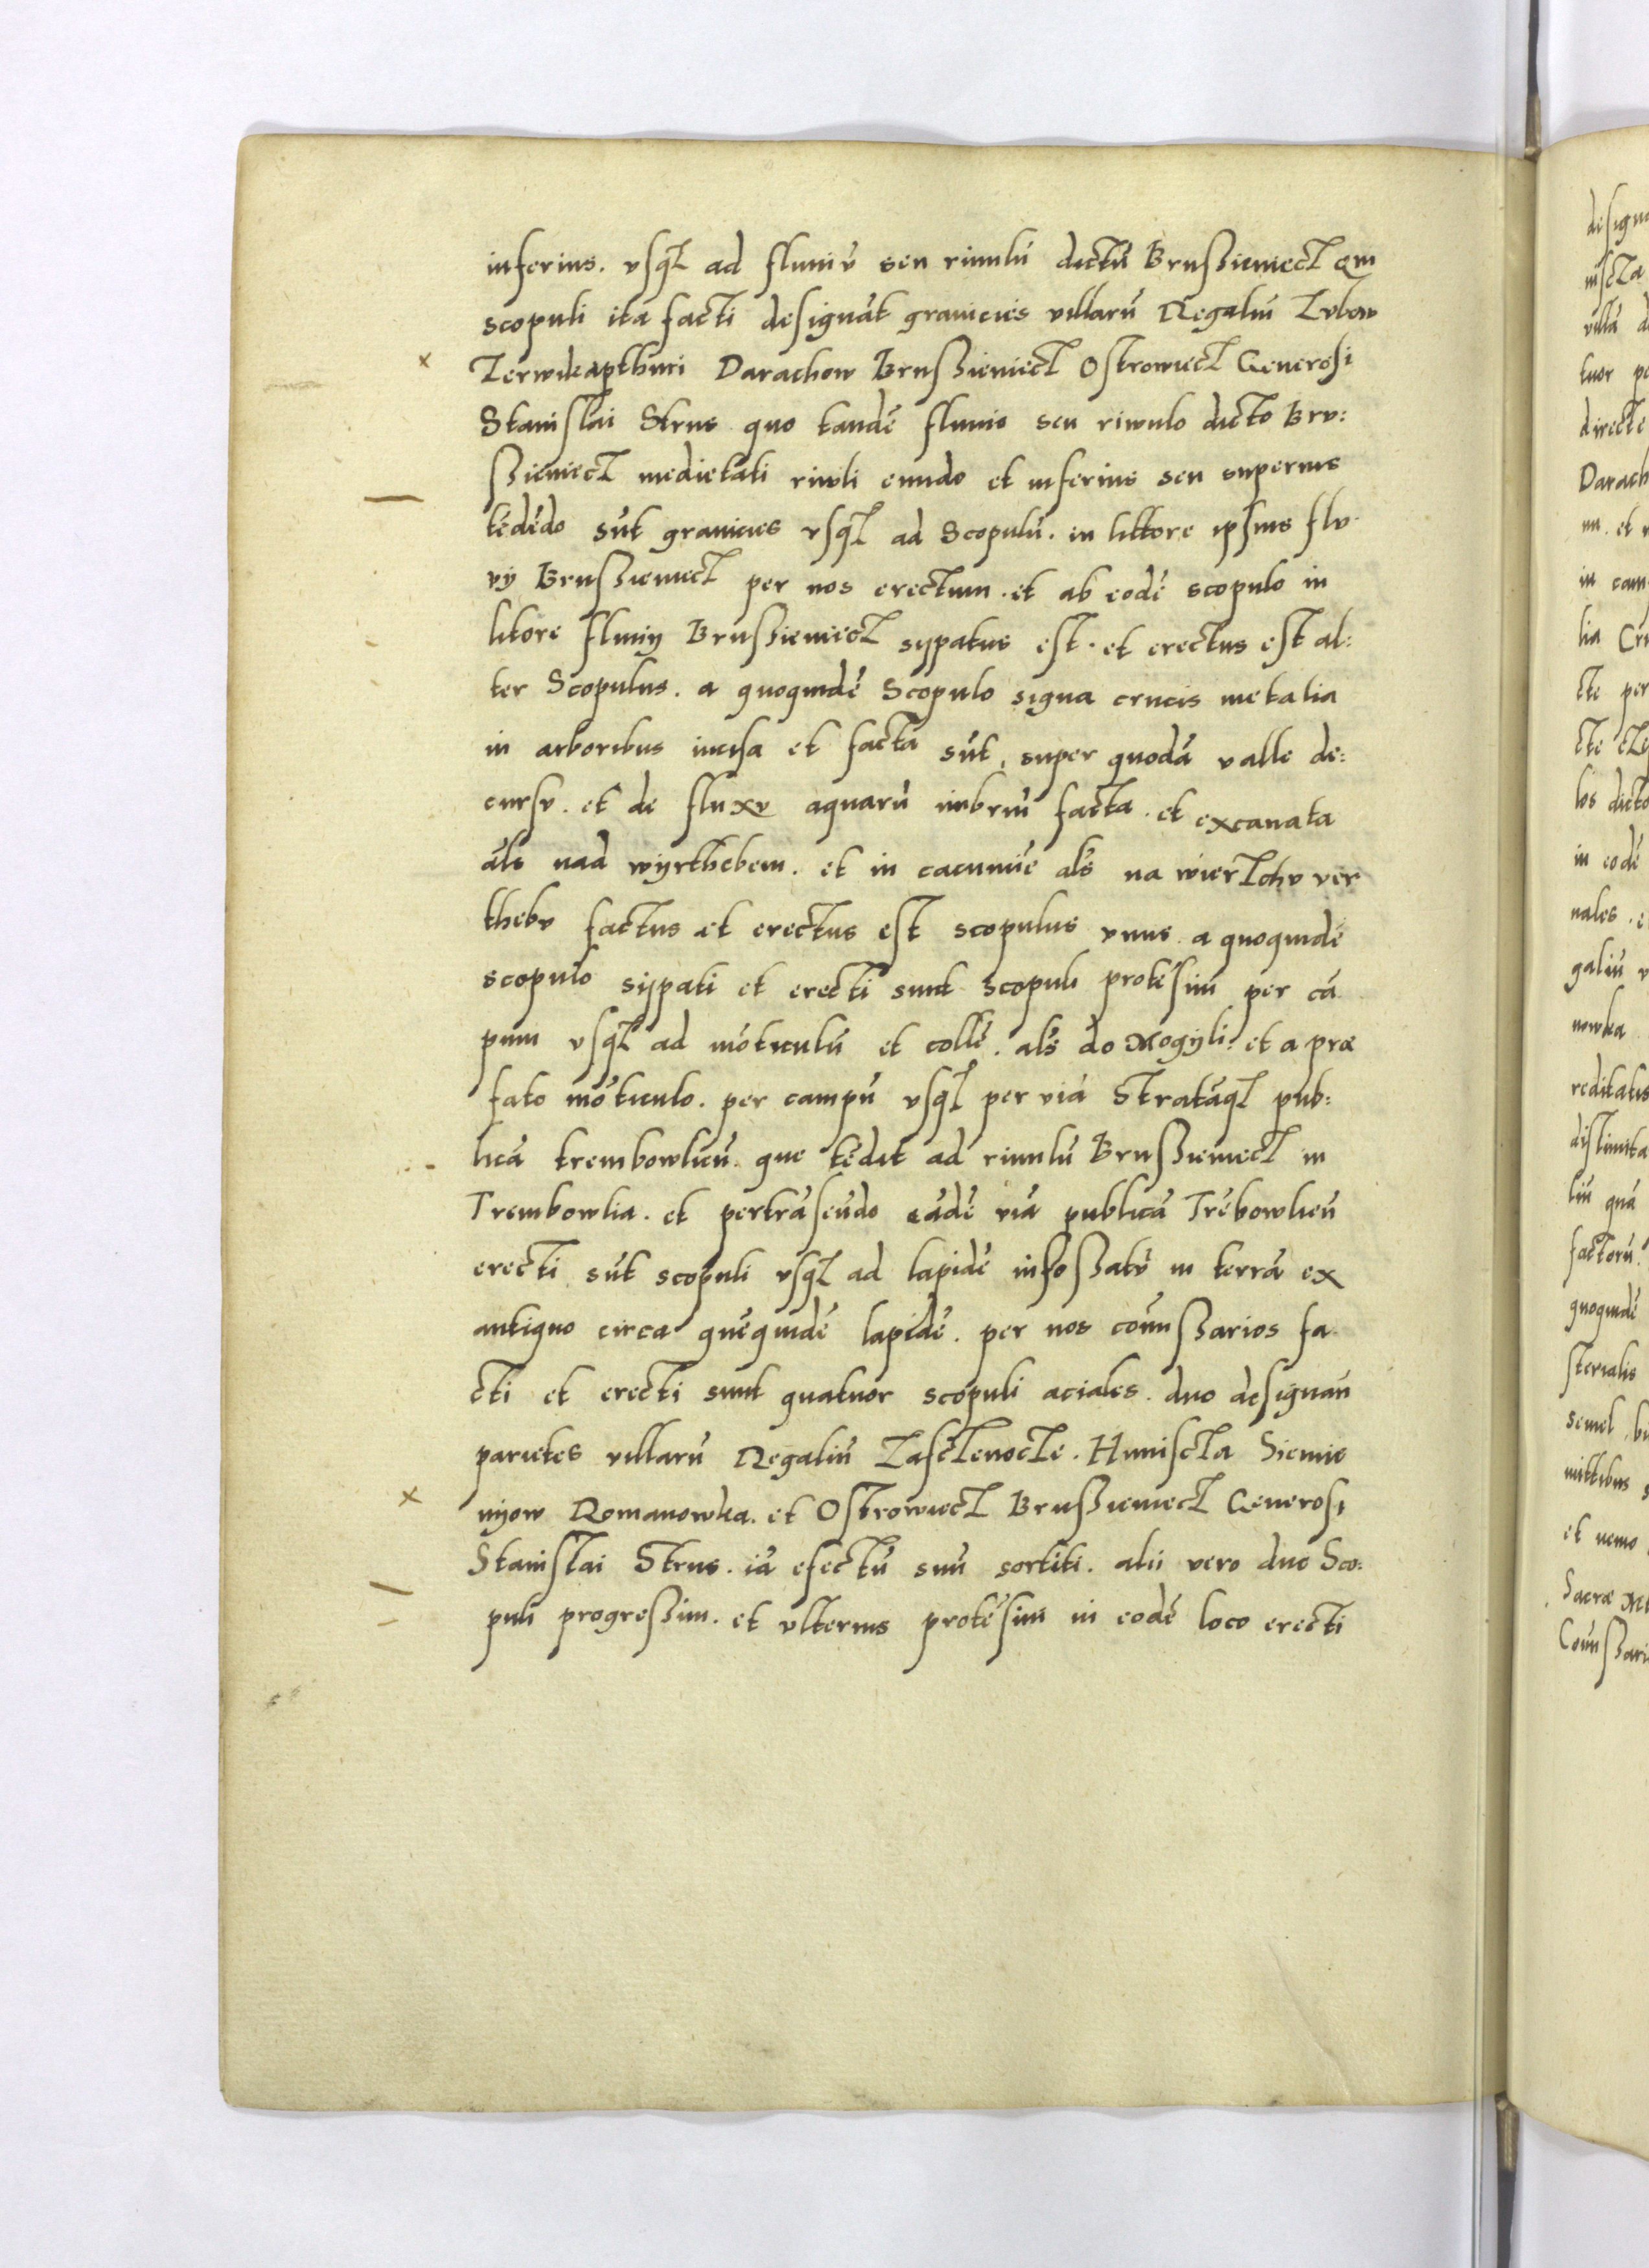 inferius. vsq₃ ad fluuiū seu riuulū dictū Brussieniecz qui
scopuli ita facti designāt granicies villarū Regaliū Zvbow
Darachow Brussieniecz Ostrowiecz Generosi
Stanislai Strus quo tandē fluuio seu riwulo dicto Brv:
ssieniecz medietati riwli eundo et inferius seu superius
tēdēdo sūt granicies vsq₃ ad Scopulū. in littore ipsius flv
vÿ Brussieniecz per nos erectum. et ab eodē scopulo in
litore fluuiÿ Brussieniecz sÿpatus est. et erectus est al:
ter Scopulus. a quoquidē Scopulo signa crucis metalia
in arboribus incisa et facta sūt, super quodā valle de:
cursv. et de fluxv aquarū imbriū facta. et excauata
als nad wÿrthebem. et in cacumīe als na wierzchv ver
thebv factus et erectus est scopulus vnus a quoquidē
scopulo sÿpati et erecti sunt Scopuli protēsim per cā
pum vsq₃ ad mōticulū et collē. als do Mogÿli: et a præ
fato mōticulo. per campū vsq₃ per viā Stratāq₃ pub:
licā trembowlieñ. que tēdit ad riuulū Brussieniecz in
Trembowlia. et pertrāseūdo eādē viā publicā Trēbowlieñ
erecti sūt scopuli vsq₃ ad lapidē infossatū in terrā ex
antiquo circa quēquidē lapidē. per nos cōmissarios fa
cti et erecti sunt quatuor scopuli aciales. duo designañ
parietes villarū Regaliū Zasczenocze. Humiscza Siemie
nÿow Romanowka. et Ostrowiecz Brussieniecz Generosi
Stanislai Strus. iā efectū suū sortiti. alii vero duo Sco:
puli progressim. et vlterius protēsim in eodē loco erecti